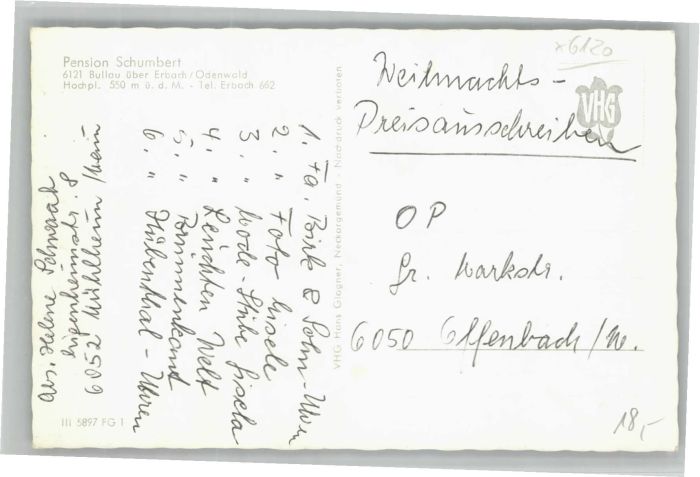 Pension Schumbert
6121 Bullau über Erbach/Odenwald
Hochpl. 550 m ü. d. M. - Tel. Erbach 662
x6120
VHG
Weihnachts-
Preisausschreiben
OP
Gr. Markstr.
6050 Offenbach/M.
18,-
1. Fa. Birk & Sohn - Uhren
2. " Foto Gisela
3. " Mode-Stübe Gisela
4. " Leuchten Welt
5. "
6. " Hübenthal - Uhren
Abs. Helene
6052 Mühlheim/Main
VHG Hans Glogner, Neckargemünd - Nachdruck verboten
III 5897 FG 1